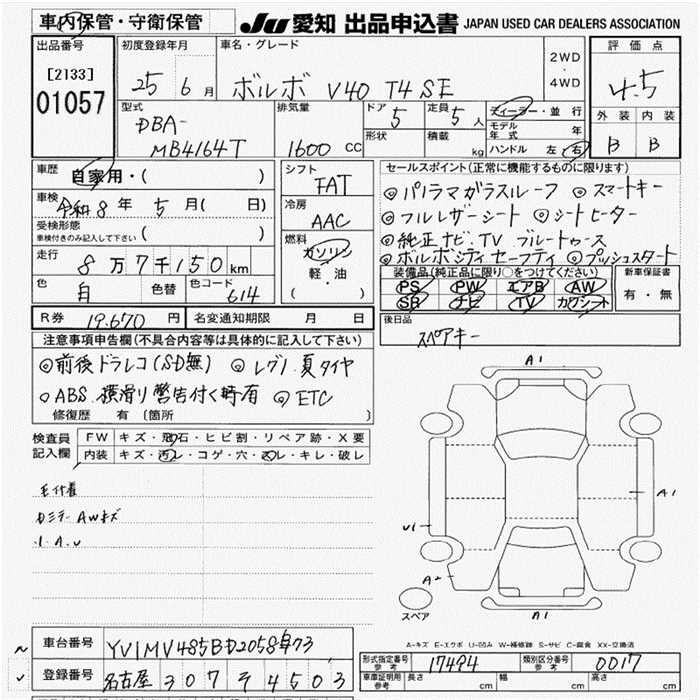 車内保管・守衛保管
JU 愛知 出品申込書 JAPAN USED CAR DEALERS ASSOCIATION
出品番号
[2133]
01057
初度登録年月
25 6月
車名・グレード
ボルボ V40 T4 SE
2WD
・
4WD
評価点
4.5
外装 内装
B B
型式
DBA-
MB4164T
排気量
1600 CC
ドア
5
定員
5人
形状
積載
kg
ディーラー・並行
モデル年式 年
ハンドル 左・右
車歴
自家用・( )
車検
令和8年 5月( 日)
受検形態
車検付きのみ記入して下さい ( )
走行
8万7千150km
色
白
色替
色コード
614
シフト
FAT
冷房
AAC
燃料
ガソリン
軽・油
( )
セールスポイント(正常に機能するものに限ります)
◎パノラマガラスルーフ ◎スマートキー
◎フルレザーシート ◎シートヒーター
◎純正ナビ.TV ブルートゥース
◎ボルボシティセーフティ ◎プッシュスタート
装備品(純正品に限り○をつけてください)
PS PW エアB AW
SR ナビ TV カワシート
新車保証書
有・無
R券 19.670円
名変通知期限 月 日
後日品
スペアキー
注意事項申告欄(不具合内容等は具体的に記入して下さい)
◎前後ドラレコ(SD無) ◎レグノ夏タイヤ
○ABS.横滑り警告付く時有 ◎ETC
修復歴 有 〔箇所 〕
検査員記入欄
FW キズ・飛石・ヒビ割・リペア跡・X要
内装 キズ・汚レ・コゲ・穴・スレ・キレ・破レ
AWキズ
A1
A1
U1
A2
A1
スペア
A-キズ E-エクボ U-凹み W-補修跡 S-サビ C-腐食 XX-交換済
車台番号
登録番号
名古屋 307 テ 4503
型式指定番号 参考
17494
類別区分番号 参考
0017
車庫証明用 参考
長さ cm
幅 cm
高さ cm